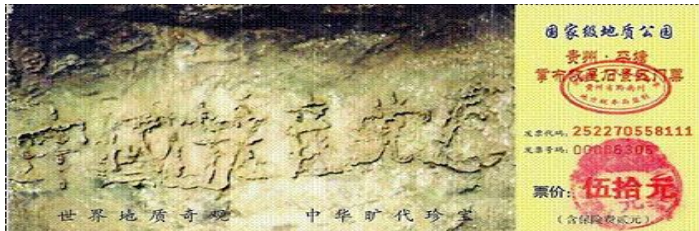 中國共产党亡
世界地质奇观 中华旷代珍宝
国家级地质公园
贵州·平塘
掌布 石景区门票
贵州省黔南州
发票代码: 252270558111
发票号码: 00086306
票价: 伍拾元
(含保险费贰元)